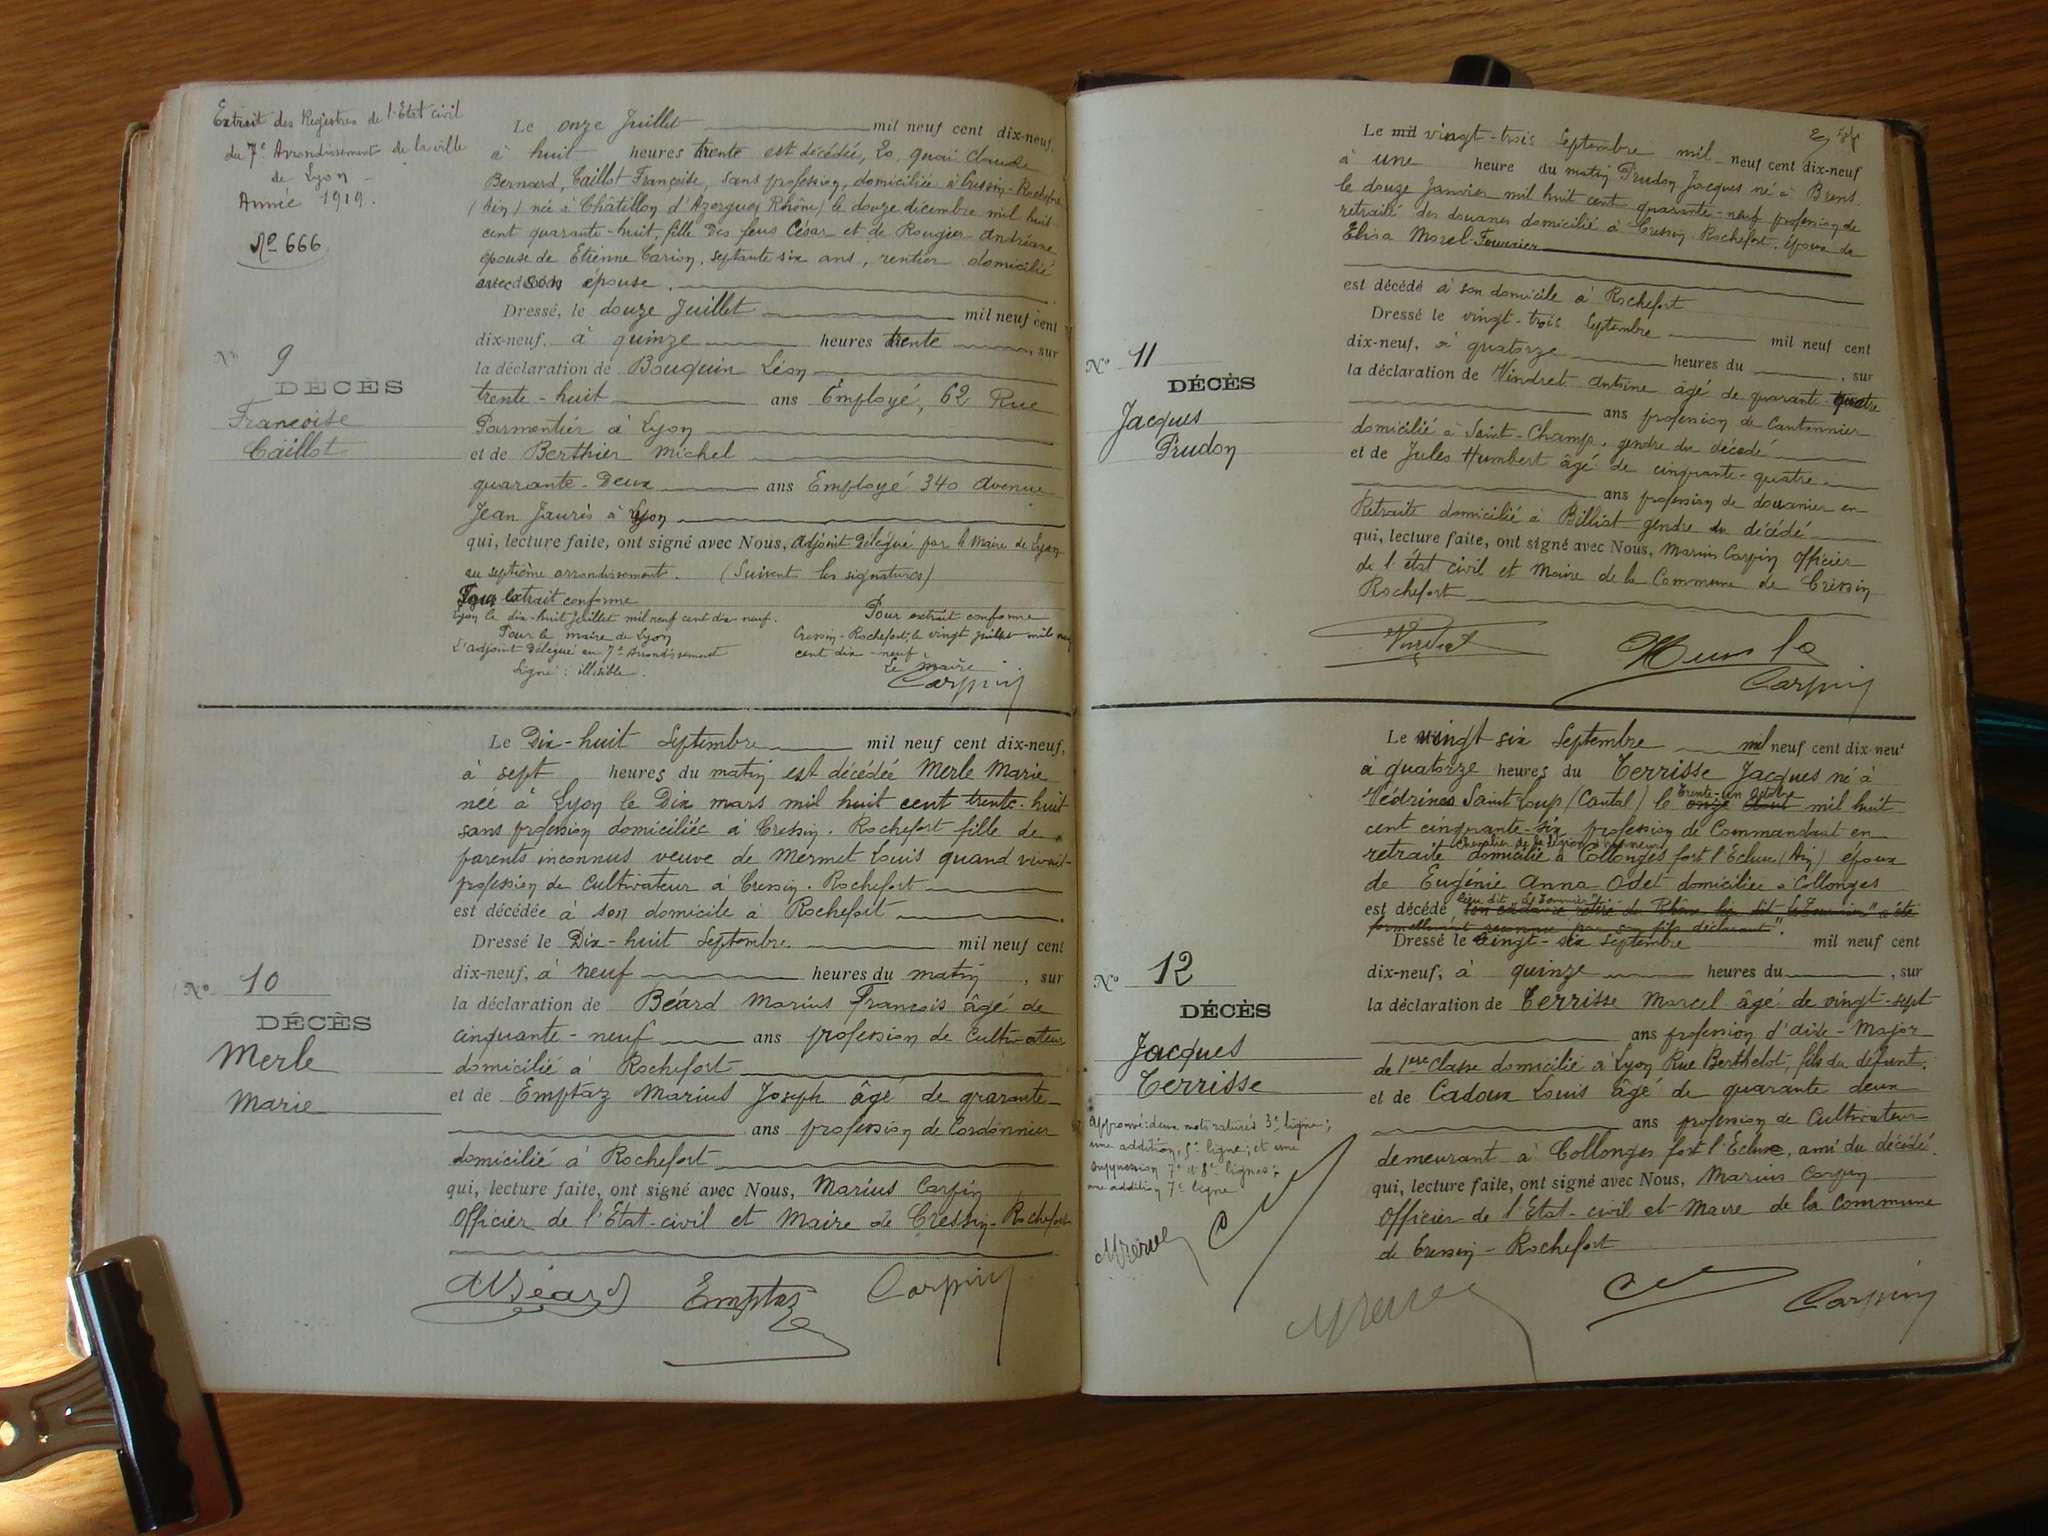 Extrait des Registres de l'Etat civil
du 7e Arrondissement de la ville
de Lyon
Année 1919.
No 666
No 9
DÉCÈS
Françoise
Caillot
Le onze Juillet mil neuf cent dix-neuf,
à huit heures trente est décédée, 20, quai Claude
Bernard, Caillot Françoise, sans profession, domiciliée à Cressin-Rochefort
(Ain) née à Châtillon d'Azergues (Rhône) le douze décembre mil huit
cent quarante-huit, fille des feus César et de Rougier Andréane
épouse de Etienne Carion, septante six ans, rentier domicilié
avec son épouse.
Dressé, le douze Juillet mil neuf cent
dix-neuf, à quinze heures trente, sur
la déclaration de Bouquin Léon
trente-huit ans Employé, 62 Rue
Parmentier à Lyon
et de Berthier Michel
quarante-Deux ans Employé 340 Avenue
Jean Jaurès à Lyon
qui, lecture faite, ont signé avec Nous, Adjoint Délégué par le Maire de Lyon
au septième arrondissement. (Suivent les signatures)
Pour extrait conforme
Lyon le dix-huit Juillet mil neuf cent dix-neuf.
Pour le maire de Lyon
L'adjoint Délégué au 7e Arrondissement
Signé : illisible.
Pour extrait conforme
Cressin-Rochefort, le vingt juillet mil neuf
cent dix-neuf
Le maire
Carpin
No 10
DÉCÈS
Merle
Marie
Le Dix-huit Septembre mil neuf cent dix-neuf,
à sept heures du matin est décédée Merle Marie
née à Lyon le Dix mars mil huit cent trente-huit
sans profession domiciliée à Cressin-Rochefort fille de
parents inconnus veuve de Mermet Louis quand vivait
profession de cultivateur à Cressin-Rochefort
est décédée à son domicile à Rochefort
Dressé le Dix-huit Septembre mil neuf cent
dix-neuf, à neuf heures du matin, sur
la déclaration de Béard Marius François âgé de
cinquante-neuf ans profession de Cultivateur
domicilié à Rochefort
et de Emptaz Marius Joseph âgé de quarante-
ans profession de Cordonnier
domicilié à Rochefort
qui, lecture faite, ont signé avec Nous, Marius Carpin
Officier de l'Etat-civil et Maire de Cressin-Rochefort
MBéard Emptaz Carpin
No 11
DÉCÈS
Jacques
Prudon
Le vingt-trois Septembre mil neuf cent dix-neuf
à une heure du matin Prudon Jacques né à Brens
le douze Janvier mil huit cent quarante-neuf profession de
retraité des douanes domicilié à Cressin-Rochefort, époux de
Elisa Morel-Fourrier
est décédé à son domicile à Rochefort
Dressé le vingt-trois Septembre mil neuf cent
dix-neuf, à quatorze heures du , sur
la déclaration de Vindret Antoine âgé de quarante-quatre
ans profession de Cantonnier
domicilié à Saint-Champ, gendre du décédé
et de Jules Humbert âgé de cinquante-quatre
ans profession de douanier en
Retraite domicilié à Billiat gendre du décédé
qui, lecture faite, ont signé avec Nous, Marius Carpin Officier
de l'état civil et Maire de la Commune de Cressin
Rochefort
Vindret
Carpin
No 12
DÉCÈS
Jacques
Terrisse
Approuvé deux mots raturés 3e ligne;
une addition, 5e ligne; et une
suppression 7e et 8e lignes;
une addition 7e ligne
Le vingt six Septembre mil neuf cent dix-neuf
à quatorze heures du Terrisse Jacques né à
Védrines Saint Loup (Cantal) le trente-un octobre onze août mil huit
cent cinquante-six profession de Commandant en
retraite chevalier de la légion d'honneur domicilié à Collonges fort l'Ecluse (Ain) époux
de Eugénie Anna Odet domiciliée à Collonges
est décédé lieu dit
formellement reconnu par son fils déclarant".
Dressé le vingt-six Septembre mil neuf cent
dix-neuf, à quinze heures du , sur
la déclaration de Terrisse Marcel âgé de vingt-sept
ans profession d'aide-Major
de 1ère Classe domicilié à Lyon Rue Berthelot, fils du défunt.
et de Cadoux Louis âgé de quarante deux
ans profession de Cultivateur
demeurant à Collonges fort l'Ecluse, ami du décédé.
qui, lecture faite, ont signé avec Nous, Marius Carpin
Officier de l'Etat-civil et Maire de la Commune
de Cressin-Rochefort
Carpin